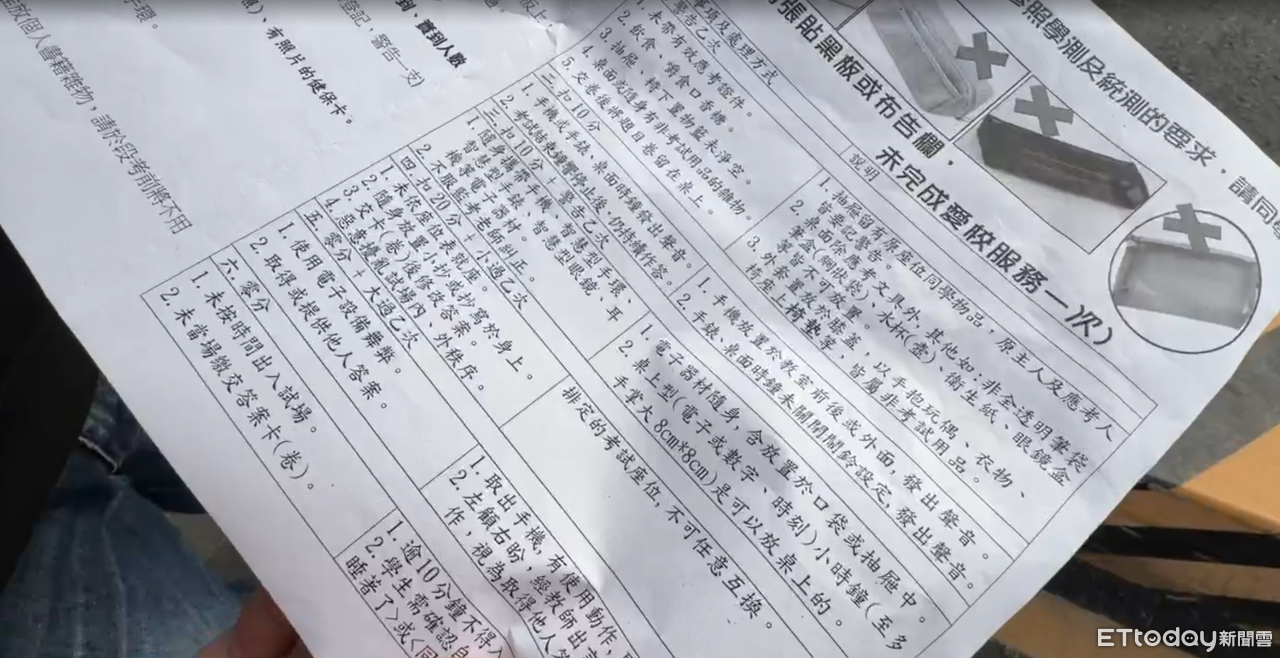 參照學測及統測的要求,請同
張貼黑板或布告欄,
未完成愛校服務一次)
事項及處理方式
說明
警告乙次
1. 未帶有效應考證件。
2. 飲食、嚼食口香糖。
3. 抽屜、椅下置物籃未淨空。
4. 桌面或隨身有非考試用品的雜物。
5. 交卷後將題目卷留在桌上。
1. 抽屜留有原座位同學物品,原主人及應考人
皆要記警告。
2. 桌面除應考文具外,其他如:非全透明筆袋
、水杯(壺)、衛生紙、眼鏡盒
3. 外套置放於膝蓋,以手抱玩偶、衣物、
椅座上椅墊等,皆屬非考試用品。
二 扣10分
1. 手機或手錶、桌面時鐘發出聲音。
2. 考試結束鐘響停止後,仍持續作答。
1. 手機放置於教室前後或外面,發出聲音。
2. 手錶、桌面時鐘未關鬧鈴設定,發出聲音。
三 扣10分+警告乙次
1. 隨身攜帶手機、智慧型手環、
智慧型手錶、智慧型眼鏡、耳
機等電子器材。
2. 不服監考老師糾正。
1. 電子器材隨身,含放置於口袋或抽屜中。
2. 桌上型(電子或數字、時刻)小時鐘(至多
手掌大8cm*8cm)是可以放桌上的。
四 扣20分+小過乙次
1. 未依座位表就座。
2. 隨身放置小抄或抄寫於身上。
3. 交卡(卷)後修改答案。
4. 惡意擾亂試場內、外秩序。
排定的考試座位,不可任意互換。
五 零分+大過乙次
1. 使用電子設備舞弊。
2. 取得或提供他人答案。
1. 取出手機,有使用動作,
2. 左顧右盼,經教師出
作,視為取得他人
六 零分
1. 未按時間出入試場。
2. 未當場繳交答案卡(卷)。
1. 逾10分鐘不得入
2. 學生需確認
睡著了>或<同
到、簽到人數
登記,警告一支)
、有照片的健保卡。
放個人書籍雜物,請於段考前將不用
ETtoday新聞雲